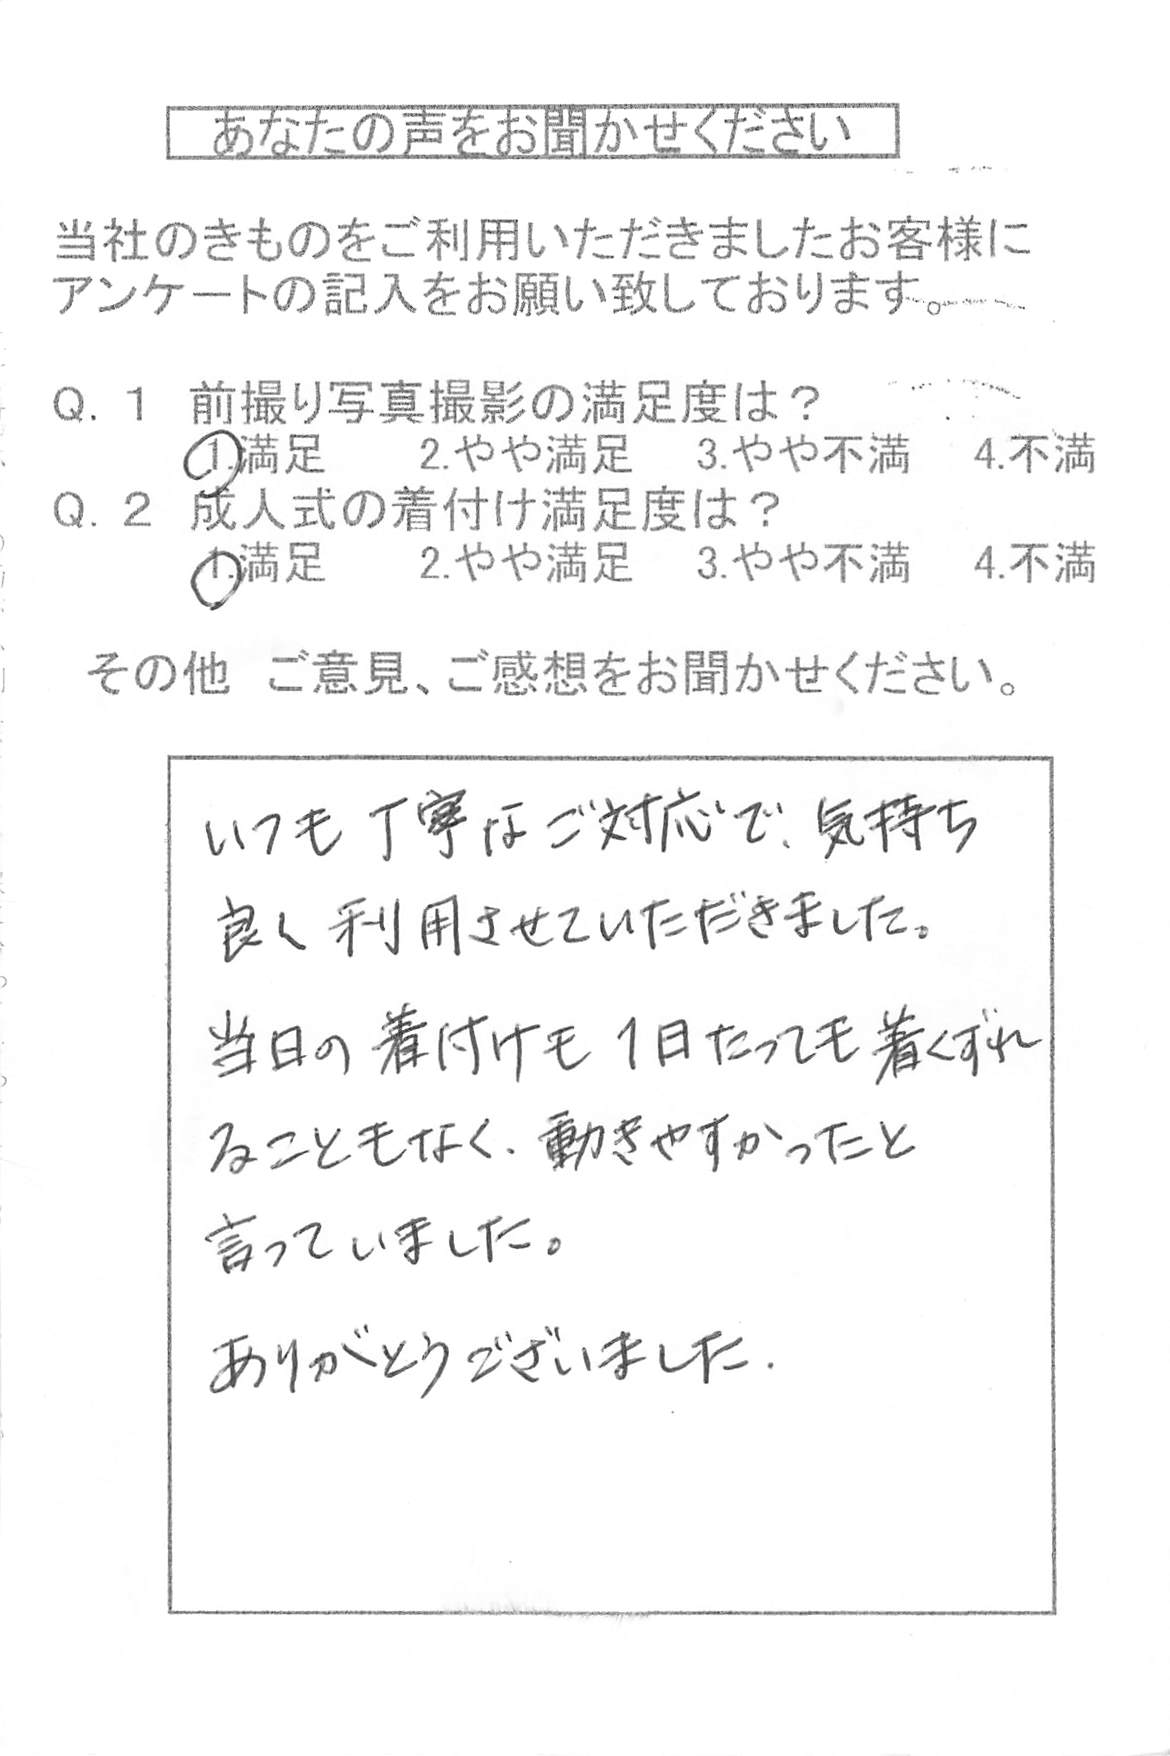 あなたの声をお聞かせください
当社のきものをご利用いただきましたお客様に
アンケートの記入をお願い致しております。
Q. 1 前撮り写真撮影の満足度は?
1.満足 2.やや満足 3.やや不満 4.不満
Q. 2 成人式の着付け満足度は?
1.満足 2.やや満足 3.やや不満 4.不満
その他 ご意見、ご感想をお聞かせください。
いつも丁寧なご対応で、気持ち
良く利用させていただきました。
当日の着付けも1日たっても着くずれ
ることもなく、動きやすかったと
言っていました。
ありがとうございました.